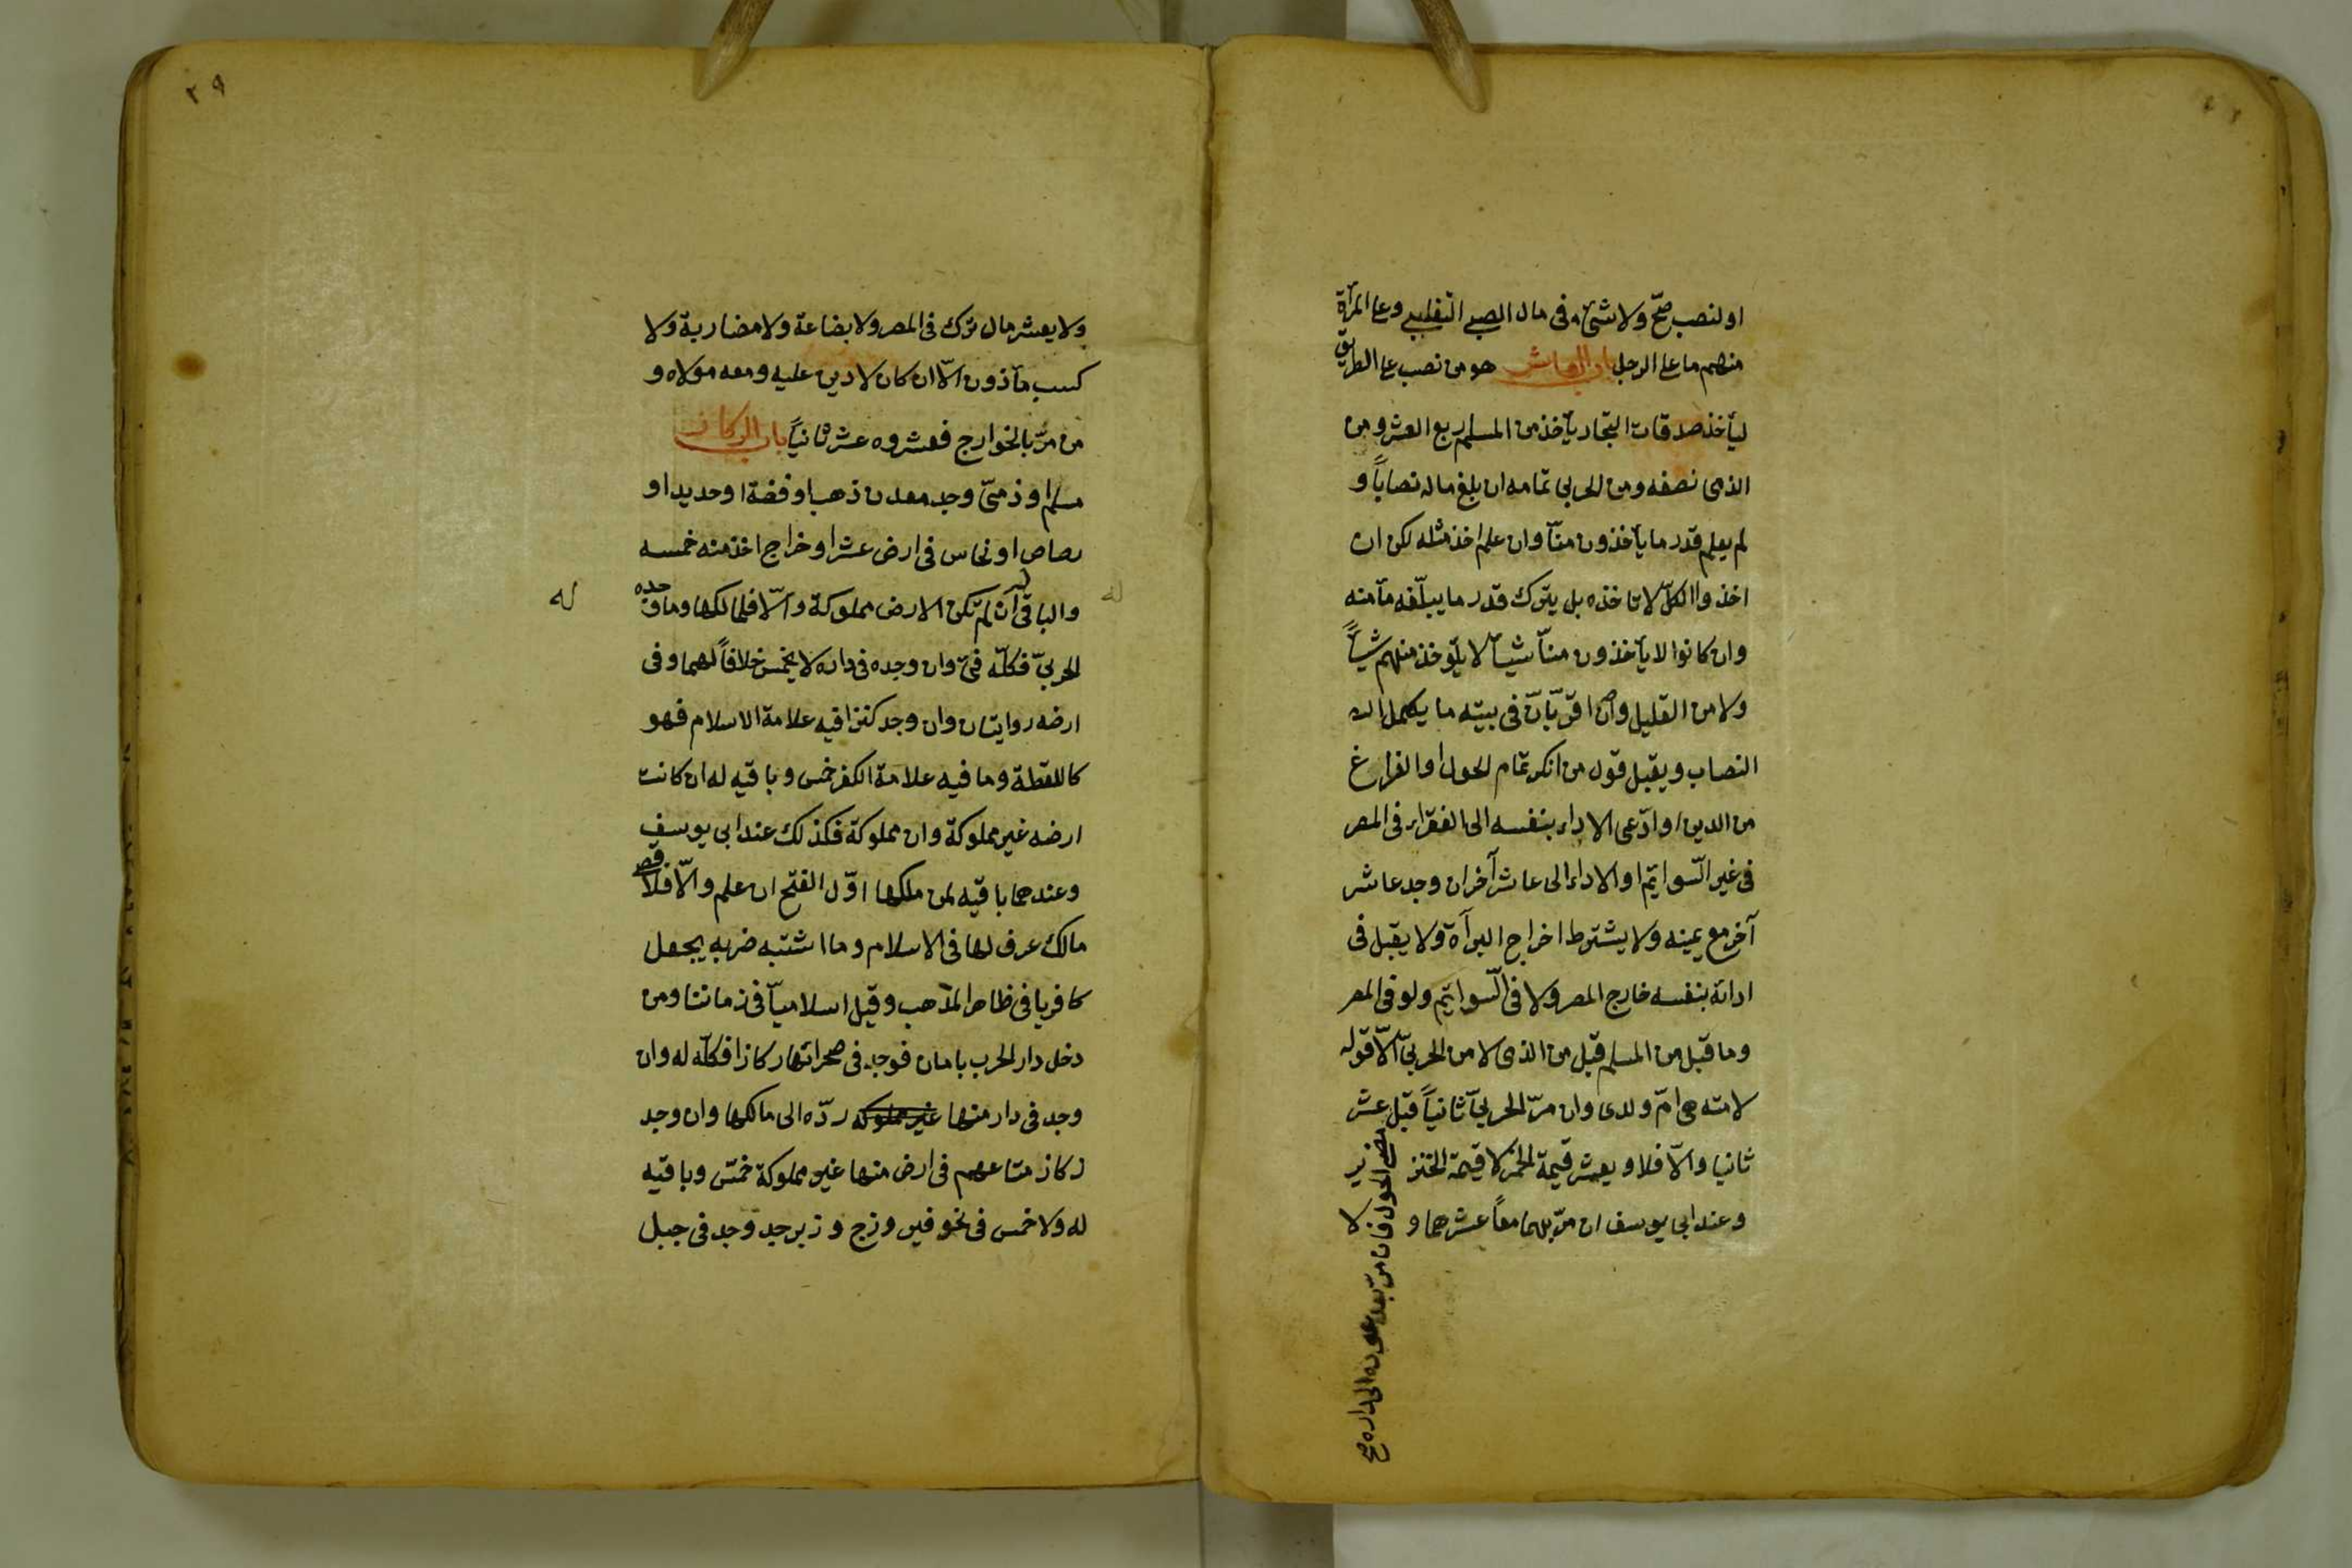 او لنصب صحّ ولا شئ فى مال الصبى التغلبى وعلى المرأة
منهم ما على الرجل باب العاشر هو من نصب على الطريق
ليأخذ صدقات التجار يأخذ من المسلم ربع العشر ومن
الذمى نصفه ومن الحربى تمامه ان بلغ ماله نصاباً و
لم يعلم قدر ما يأخذون منّا وان علم اخذ مثله لكن ان
اخذوا الكلّ لا ناخذه بل يترك قدر ما يبلّغه مأمنه
وان كانوا لا يأخذون منّا شيئاً لا يؤخذ منهم شيئاً
ولا من القليل وان اقرّ بانّ فى بيته ما يكمل
النصاب ويقبل قول من انكر تمام الحول او الفراغ
من الدين او ادّعى الاداء بنفسه الى الفقراء فى المصر
فى غير السّوايم او الاداء الى عاشر آخر ان وجد عاشر
آخر مع يمينه ولا يشترط اخراج البرأة ولا يقبل فى
ادائه بنفسه خارج المصر ولا فى السّوايم ولو فى المصر
وما قبل من المسلم قبل من الذمى لا من الحربىّ الاّ قوله
لامته هى امّ ولدى وان مرّ الحربىّ ثانياً قبل عشر
مضى الحول فان مرّ بعد عوده الى داره صح
ثانيا والاّ فلا ويعشر قيمة الخمر لا قيمة الخنزير
وعند ابى يوسف ان مرّ بهما معاً عشرهما و لا
٢٩
ولا يعشر مال ترك فى المصر ولا بضاعة ولا مضاربة ولا
كسب مأذون الاّ ان كان لا دين عليه ومعه مولاه و
من مرّ بالخوارج فعشروه عشر ثانياً باب الركاز
مسلم او ذمىّ وجد معدن ذهب او فضة او حديد او
رصاص او نحاس فى ارض عشر او خراج اخذ منه خمسه
والباقى له ان لم تكن الارض مملوكة والاّ فلمالكها وما وجده
الحربىّ فكلّه فئ وان وجده فى داره لا يخمس خلافاً لهما وفى
ارضه روايتان وان وجد كنزا فيه علامة الاسلام فهو
كاللقطة وما فيه علامة الكفر خمس وباقيه له ان كانت
ارضه غير مملوكة وان مملوكة فكذلك عند ابى يوسف
وعندهما باقيه لمن ملكها اوّل الفتح ان علم والاّ فلاقصى
مالك عرف لها فى الاسلام وما اشتبه ضربه يجعل
كافريا فى ظاهر المذهب وقيل اسلاميّاً فى زماننا ومن
دخل دار الحرب بامان فوجد فى صحرائها ركازا فكلّه له وان
وجد فى دار منها غير مملوكه ردّه الى مالكها وان وجد
ركاز متاعهم فى ارض منها غير مملوكة خمّس وباقيه
له ولا خمس فى نحو فيروزج وزبرجد وجد فى جبل
له